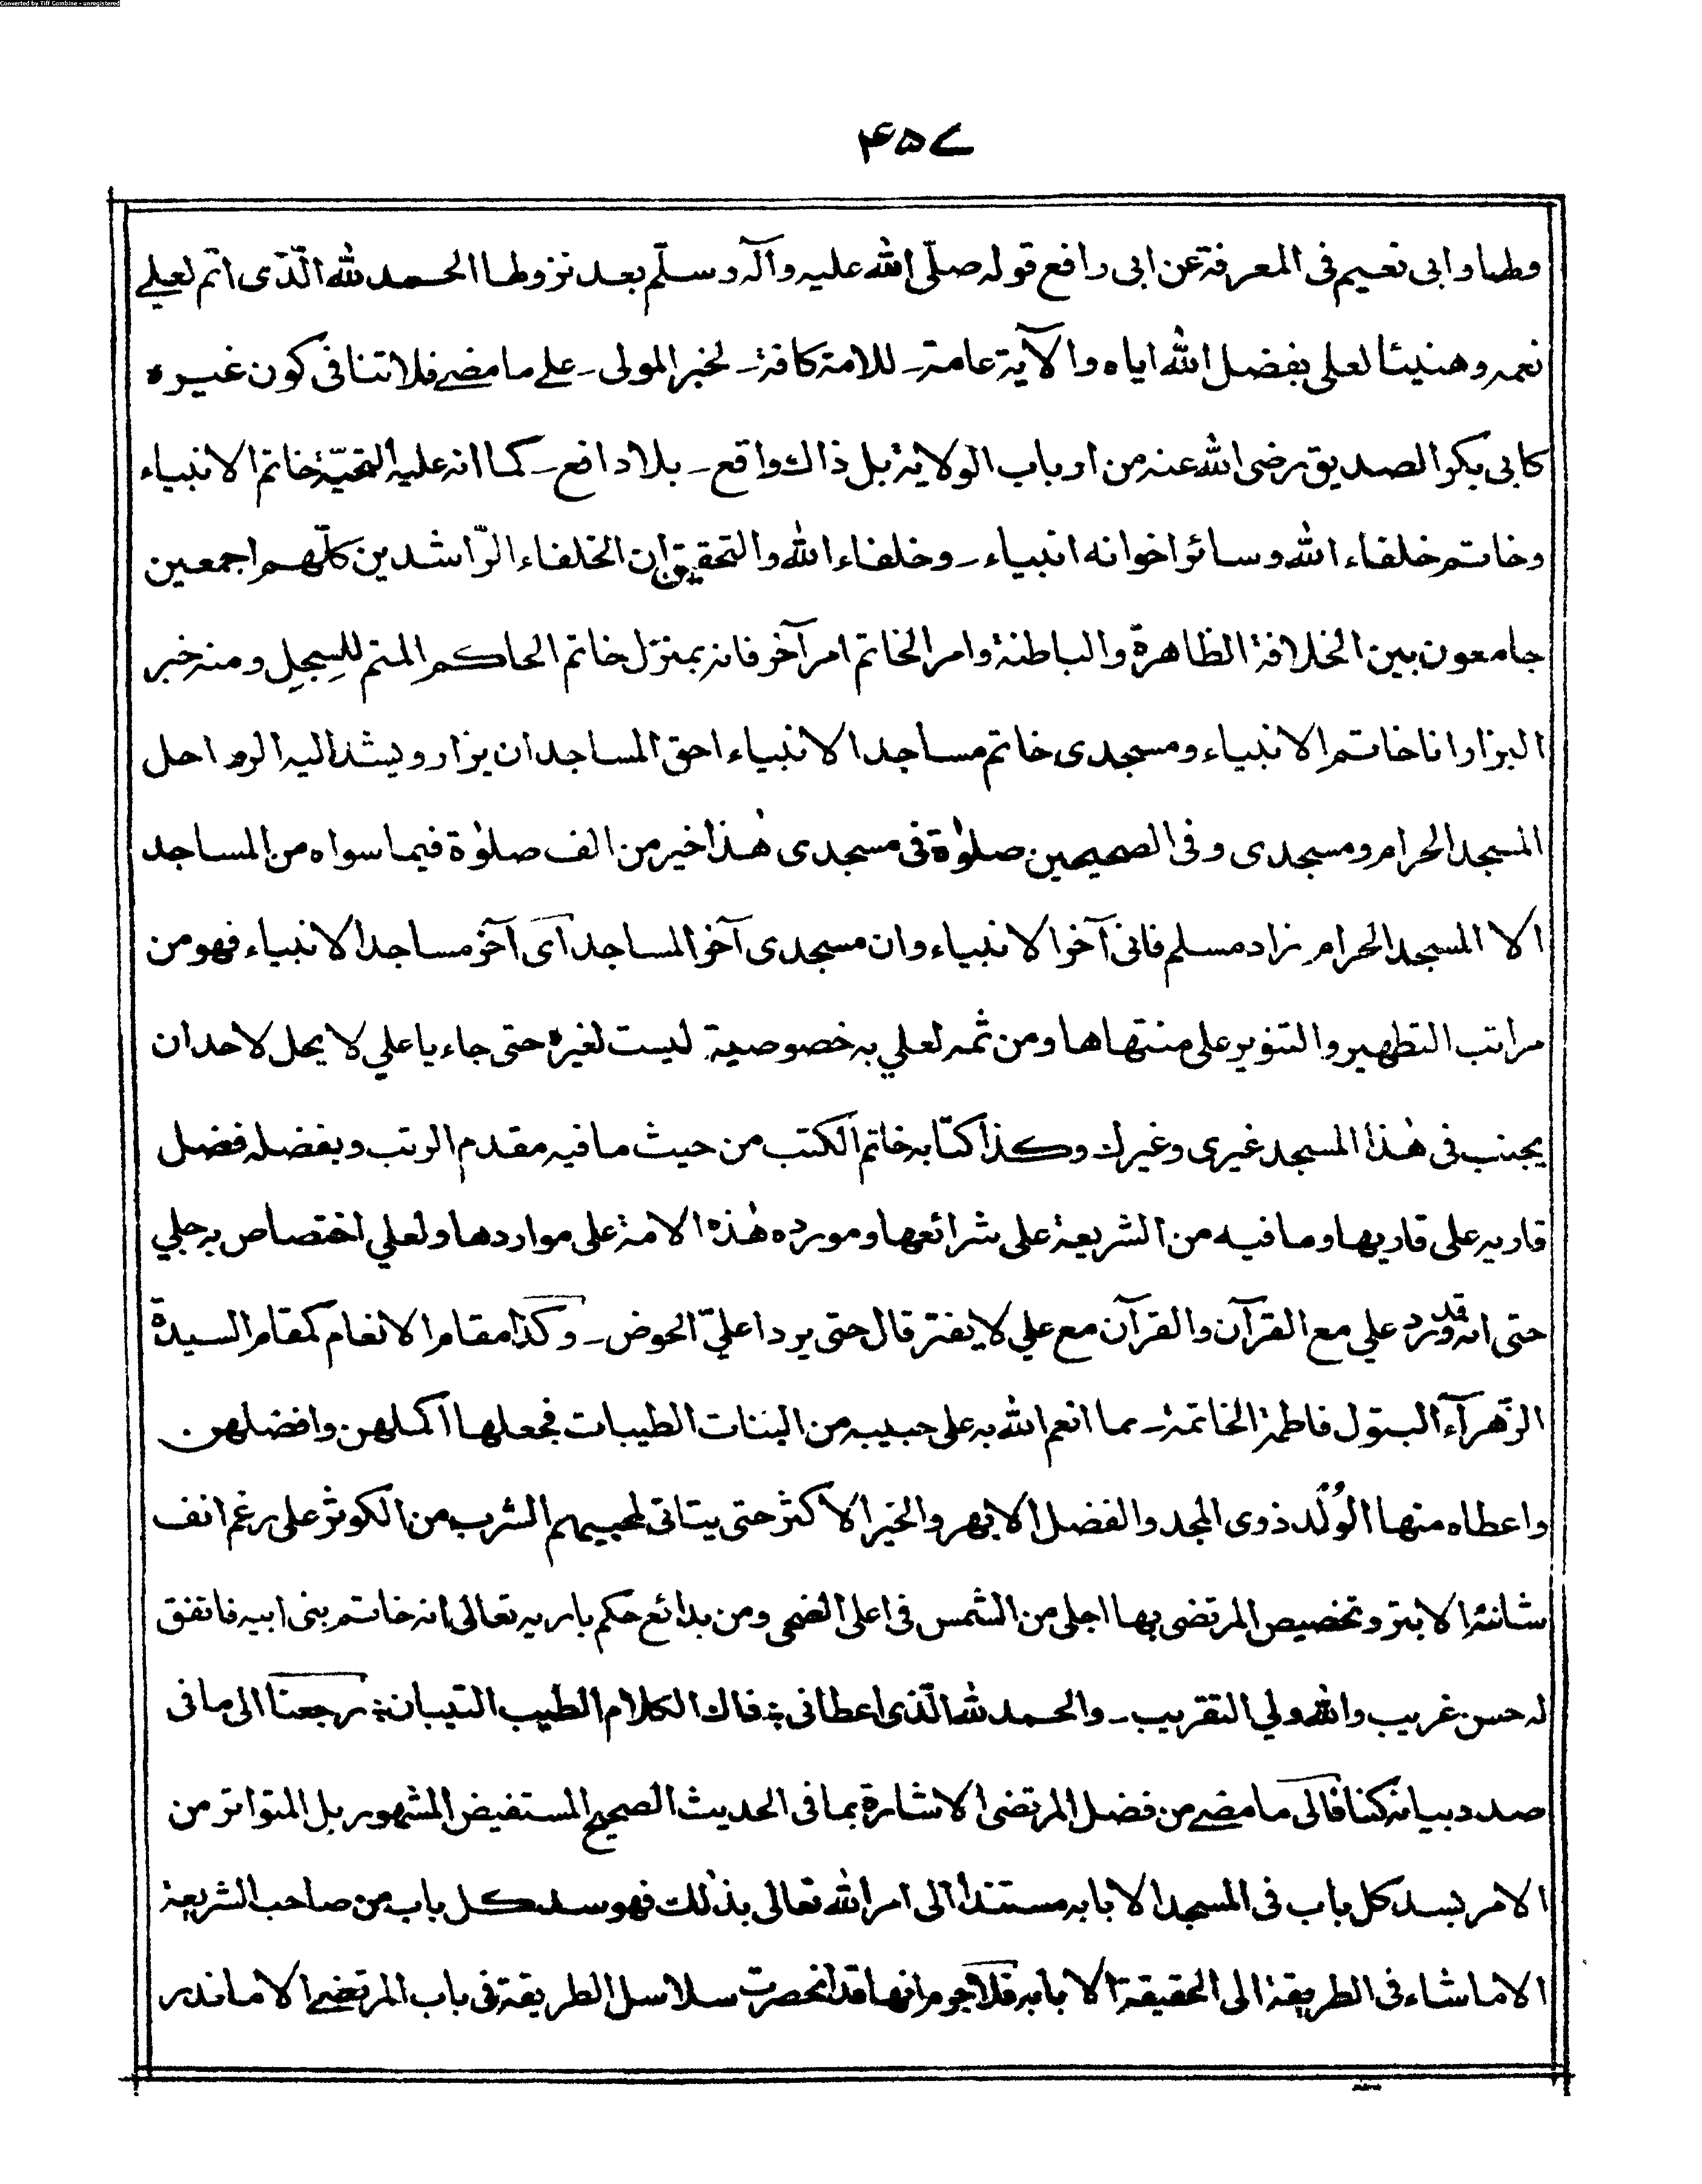 Converted by Tiff Combine - unregistered
۴۵۷
وابي نعيم في المعرفة عن ابي رافع قوله صلّى الله عليه وآله وسلّم بعد نزولها الحمد لله الّذى اتم لعلي
نعمه وهنيئا لعلي بفضل الله اياه والآية عامة۔ للامة كافة۔ لخبر المولى۔ على ما مضى فلا تنافى كون غيره
كابى بكر الصديق رضى الله عنه من ارباب الولاية بل ذاك واقع۔ بلا دافع۔ كما انه عليه التحيّة خاتم الانبياء
وخاتم خلفاء الله وسائر اخوانه انبياء۔ وخلفاء الله والتحقيق ان الخلفاء الرّاشدين كلّهم اجمعين
جامعون بين الخلافة الظاهرة والباطنة وامر الخاتم امر آخر فانه بمنزل خاتم الحاكم المتم للسِجِل ومنه خبر
البزار انا خاتم الانبياء ومسجدى خاتم مساجد الانبياء احق المساجد ان يزار ويشد اليه الرواحل
المسجد الحرام ومسجدى وفى الصحيحين صلوٰة فى مسجدى هٰذا خير من الف صلوٰة فيما سواه من المساجد
الا المسجد الحرام زاد مسلم فانى آخر الانبياء وان مسجدى آخر المساجد اى آخر مساجد الانبياء فهو من
مراتب التطهير والتنوير على منتهاها ومن ثمه لعلي به خصوصية ليست لغيره حتى جاء يا علي لا يحل لاحد ان
يجنب فى هٰذا المسجد غيرى وغيرك وكذا كتابه خاتم الكتب من حيث ما فيه مقدم الرتب وبفضله فضل
قاريه على قاريها وما فيه من الشريعة على شرائعها ومورده هٰذه الامة على مواردها ولعلي اختصاص به جلي
حتى انه قد ورد علي مع القرآن والقرآن مع علي لا يفترقا حتى يردا عليّ الحوض۔ وكذا مقام الانعام كمقام السيدة
الزّهرآء البتول فاطمة الخاتمة۔ مما انعم الله به على حبيبه من البنات الطيبات فجعلها اكملهن وافضلهن
واعطاه منها الوُلْد ذوى المجد والفضل الابهر والخير الاكثر حتى يتاتى لمحبيهم الشرب من الكوثر على رغم انف
شانئه الابتر وتخصيص المرتضى بها اجلى من الشمس فى اعلى الضحى ومن بدائع حكم باريه تعالى انه خاتم بنى ابيه فاتفق
له حسن غريب والله ولي التقريب۔ والحمد لله الّذى اعطانى ۔ فاك الكلام الطيب التبيان ۔ رجعنا الى ما فى
صدد بيانه كنا فالى ما مضى من فضل المرتضى الاشارة بما فى الحديث الصحيح المستفيض المشهور بل المتواتر من
الامر بسد كل باب فى المسجد الا بابه مستندا الى امر الله تعالى بذلك فهو سد كل باب من صاحب الشريعة
الا ما شاء فى الطريقة الى الحقيقة الا بابه فلا جرم انها قد انحصرت سلاسل الطريقة فى باب المرتضى الا ما ندر